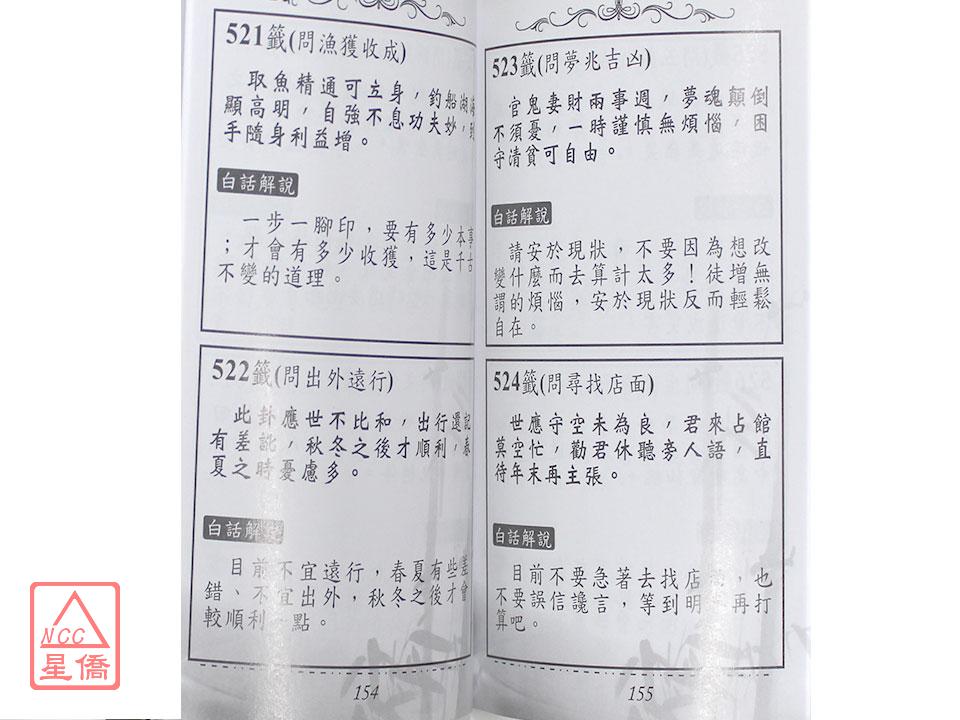 521籤(問漁獲收成)
取魚精通可立身，釣船湖海
顯高明，自強不息功夫妙，到
手隨身利益增。
白話解說
一步一腳印，要有多少本事
；才會有多少收獲，這是千古
不變的道理。
522籤(問出外遠行)
此卦應世不比和，出行還記
有差訛，秋冬之後才順利，春
夏之時憂慮多。
白話解說
目前不宜遠行，春夏有些差
錯、不宜出外，秋冬之後才會
較順利一點。
154
523籤(問夢兆吉凶)
官鬼妻財兩事週，夢魂顛倒
不須憂，一時謹慎無煩惱，困
守清貧可自由。
白話解說
請安於現狀，不要因為想改
變什麼而去算計太多！徒增無
謂的煩惱，安於現狀反而輕鬆
自在。
524籤(問尋找店面)
世應守空未為良，君來占館
莫空忙，勸君休聽旁人語，直
待年末再主張。
白話解說
目前不要急著去找店面，也
不要誤信讒言，等到明年再打
算吧。
155
NCC
星僑